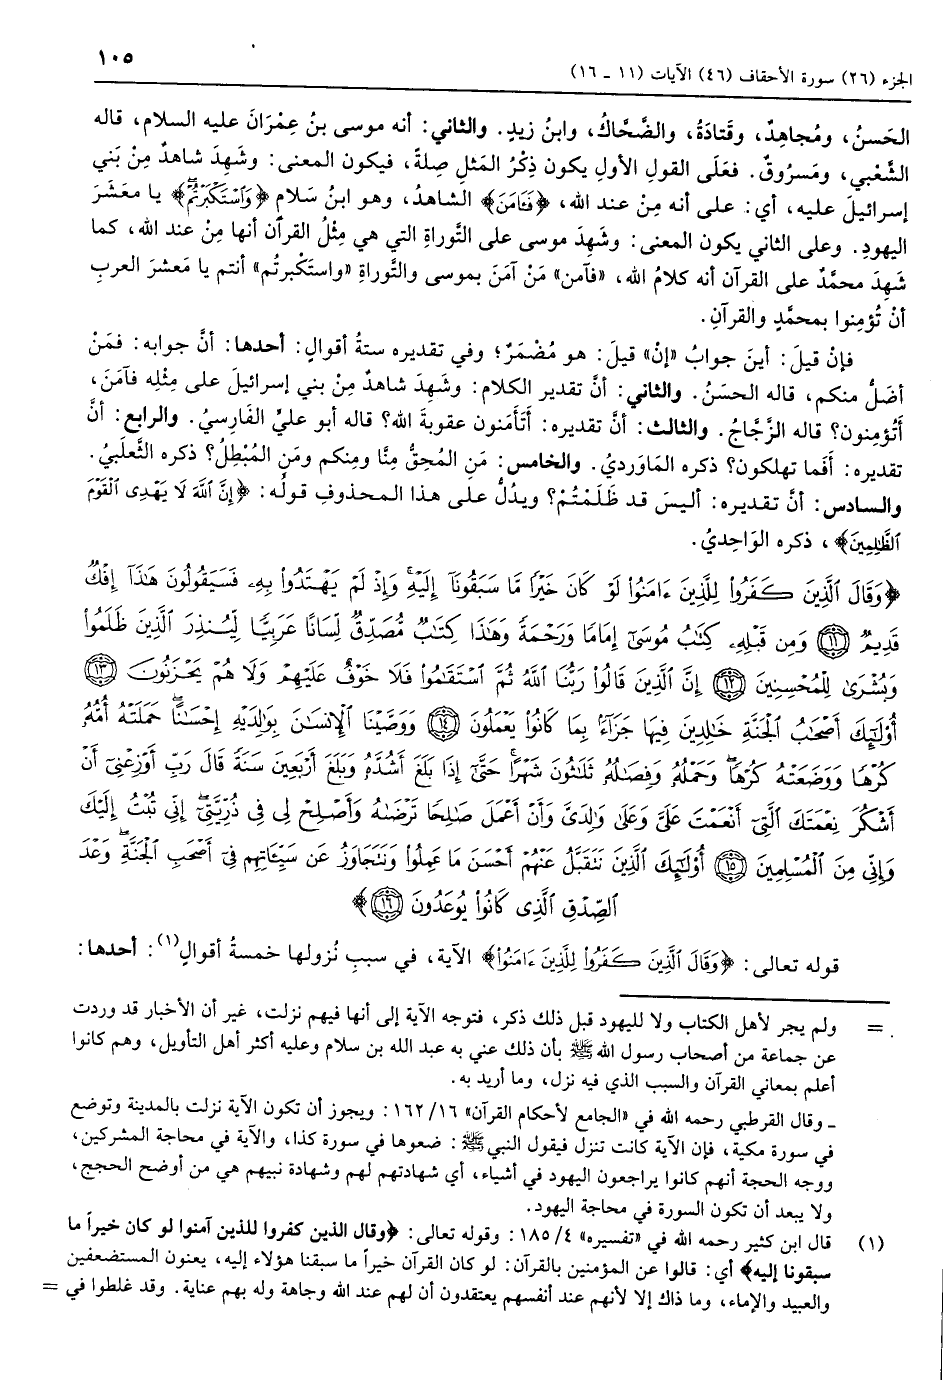 الجزء (٢٦) سورة الأحقاف (٤٦) الآيات (١١ ـ ١٦)
١٠٥
الحَسنُ، ومُجاهِدٌ، وقَتادَةُ، والضَّحَّاكُ، وابنُ زيدٍ. والثاني: أنه موسى بنُ عِمْرَانَ عليه السلام، قاله
الشَّعْبي، ومَسرُوقٌ. فعَلَى القولِ الأولِ يكون ذِكْرُ المَثلِ صِلةً، فيكون المعنى: وشَهِدَ شاهدٌ مِنْ بَني
إسرائيلَ عليه، أي: على أنه مِنْ عند الله، ﴿فَـَٔامَنَ﴾ الشاهدُ، وهو ابنُ سَلامٍ ﴿وَٱسْتَكْبَرْتُمْ﴾ يا معشَرَ
اليهودِ. وعلى الثاني يكون المعنى: وشَهِدَ موسى على التَّوراةِ التي هي مِثْلُ القرآن أنها مِنْ عند الله، كما
شَهِدَ محمَّدٌ على القرآن أنه كلامُ الله، «فآمن» مَنْ آمَنَ بموسى والتَّوراةِ «واستَكْبرتُم» أنتم يا مَعشرَ العربِ
أنْ تُؤمِنوا بمحمَّدٍ والقرآنِ.
فإن قيلَ: أينَ جوابُ «إنْ» قيلَ: هو مُضْمَرٌ؛ وفي تقديره ستةُ أقوالٍ: أحدها: أنَّ جوابه: فمَنْ
أضلُّ منكم، قاله الحسَنُ. والثاني: أنَّ تقدير الكلام: وشَهِدَ شاهدٌ مِنْ بني إسرائيلَ على مِثْلِه فآمَنَ،
أتُؤمِنون؟ قاله الزَّجَّاجُ. والثالث: أنَّ تقديره: أتَأمَنون عقوبةَ الله؟ قاله أبو عليٍّ الفَارِسيُ. والرابع: أنَّ
تقديره: أفَما تهلكون؟ ذكره المَاوَرديُ. والخامس: مَنِ المُحِقُّ مِنَّا ومِنكم ومَنِ المُبْطِلُ؟ ذكره الثَّعلَبيُ.
والسادس: أنَّ تقديره: أليسَ قد ظَلَمْتُمْ؟ ويدُلُّ على هذا المحذوفِ قولُه: ﴿إِنَّ ٱللَّهَ لَا يَهْدِى ٱلْقَوْمَ
ٱلظَّٰلِمِينَ﴾، ذكره الوَاحِديُ.
﴿وَقَالَ ٱلَّذِينَ كَفَرُوا۟ لِلَّذِينَ ءَامَنُوا۟ لَوْ كَانَ خَيْرًا مَّا سَبَقُونَآ إِلَيْهِ ۚ وَإِذْ لَمْ يَهْتَدُوا۟ بِهِۦ فَسَيَقُولُونَ هَٰذَآ إِفْكٌ
قَدِيمٌ (١١) وَمِن قَبْلِهِۦ كِتَٰبُ مُوسَىٰٓ إِمَامًا وَرَحْمَةً وَهَٰذَا كِتَٰبٌ مُّصَدِّقٌ لِّسَانًا عَرَبِيًّا لِّيُنذِرَ ٱلَّذِينَ ظَلَمُوا۟
وَبُشْرَىٰ لِلْمُحْسِنِينَ (١٢) إِنَّ ٱلَّذِينَ قَالُوا۟ رَبُّنَا ٱللَّهُ ثُمَّ ٱسْتَقَٰمُوا۟ فَلَا خَوْفٌ عَلَيْهِمْ وَلَا هُمْ يَحْزَنُونَ (١٣)
أُو۟لَٰٓئِكَ أَصْحَٰبُ ٱلْجَنَّةِ خَٰلِدِينَ فِيهَا جَزَآءًۢ بِمَا كَانُوا۟ يَعْمَلُونَ (١٤) وَوَصَّيْنَا ٱلْإِنسَٰنَ بِوَٰلِدَيْهِ إِحْسَٰنًا ۖ حَمَلَتْهُ أُمُّهُۥ
كُرْهًا وَوَضَعَتْهُ كُرْهًا ۖ وَحَمْلُهُۥ وَفِصَٰلُهُۥ ثَلَٰثُونَ شَهْرًا ۚ حَتَّىٰٓ إِذَا بَلَغَ أَشُدَّهُۥ وَبَلَغَ أَرْبَعِينَ سَنَةً قَالَ رَبِّ أَوْزِعْنِىٓ أَنْ
أَشْكُرَ نِعْمَتَكَ ٱلَّتِىٓ أَنْعَمْتَ عَلَىَّ وَعَلَىٰ وَٰلِدَىَّ وَأَنْ أَعْمَلَ صَٰلِحًا تَرْضَىٰهُ وَأَصْلِحْ لِى فِى ذُرِّيَّتِىٓ ۖ إِنِّى تُبْتُ إِلَيْكَ
وَإِنِّى مِنَ ٱلْمُسْلِمِينَ (١٥) أُو۟لَٰٓئِكَ ٱلَّذِينَ نَتَقَبَّلُ عَنْهُمْ أَحْسَنَ مَا عَمِلُوا۟ وَنَتَجَاوَزُ عَن سَيِّـَٔاتِهِمْ فِىٓ أَصْحَٰبِ ٱلْجَنَّةِ ۖ وَعْدَ
ٱلصِّدْقِ ٱلَّذِى كَانُوا۟ يُوعَدُونَ (١٦)﴾
قوله تعالى: ﴿وَقَالَ ٱلَّذِينَ كَفَرُوا۟ لِلَّذِينَ ءَامَنُوا۟﴾ الآية، في سببِ نُزولها خمسةُ أقوالٍ(١): أحدها:
= ولم يجر لأهل الكتاب ولا لليهود قبل ذلك ذكر، فتوجه الآية إلى أنها فيهم نزلت، غير أن الأخبار قد وردت
عن جماعة من أصحاب رسول الله ﷺ بأن ذلك عني به عبد الله بن سلام وعليه أكثر أهل التأويل، وهم كانوا
أعلم بمعاني القرآن والسبب الذي فيه نزل، وما أريد به.
ـ وقال القرطبي رحمه الله في «الجامع لأحكام القرآن» ١٦٢/١٦: ويجوز أن تكون الآية نزلت بالمدينة وتوضع
في سورة مكية، فإن الآية كانت تنزل فيقول النبي ﷺ: ضعوها في سورة كذا، والآية في محاجة المشركين،
ووجه الحجة أنهم كانوا يراجعون اليهود في أشياء، أي شهادتهم لهم وشهادة نبيهم هي من أوضح الحجج،
ولا يبعد أن تكون السورة في محاجة اليهود.
(١) قال ابن كثير رحمه الله في «تفسيره» ١٨٥/٤: وقوله تعالى: ﴿وقال الذين كفروا للذين آمنوا لو كان خيراً ما
سبقونا إليه﴾ أي: قالوا عن المؤمنين بالقرآن: لو كان القرآن خيراً ما سبقنا هؤلاء إليه، يعنون المستضعفين
والعبيد والإماء، وما ذاك إلا لأنهم عند أنفسهم يعتقدون أن لهم عند الله وجاهة وله بهم عناية. وقد غلطوا في =